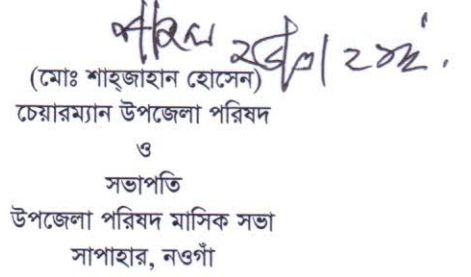 (মোঃ শাহ্জাহান হোসেন)
চেয়ারম্যান উপজেলা পরিষদ
ও
সভাপতি
উপজেলা পরিষদ মাসিক সভা
সাপাহার, নওগাঁ